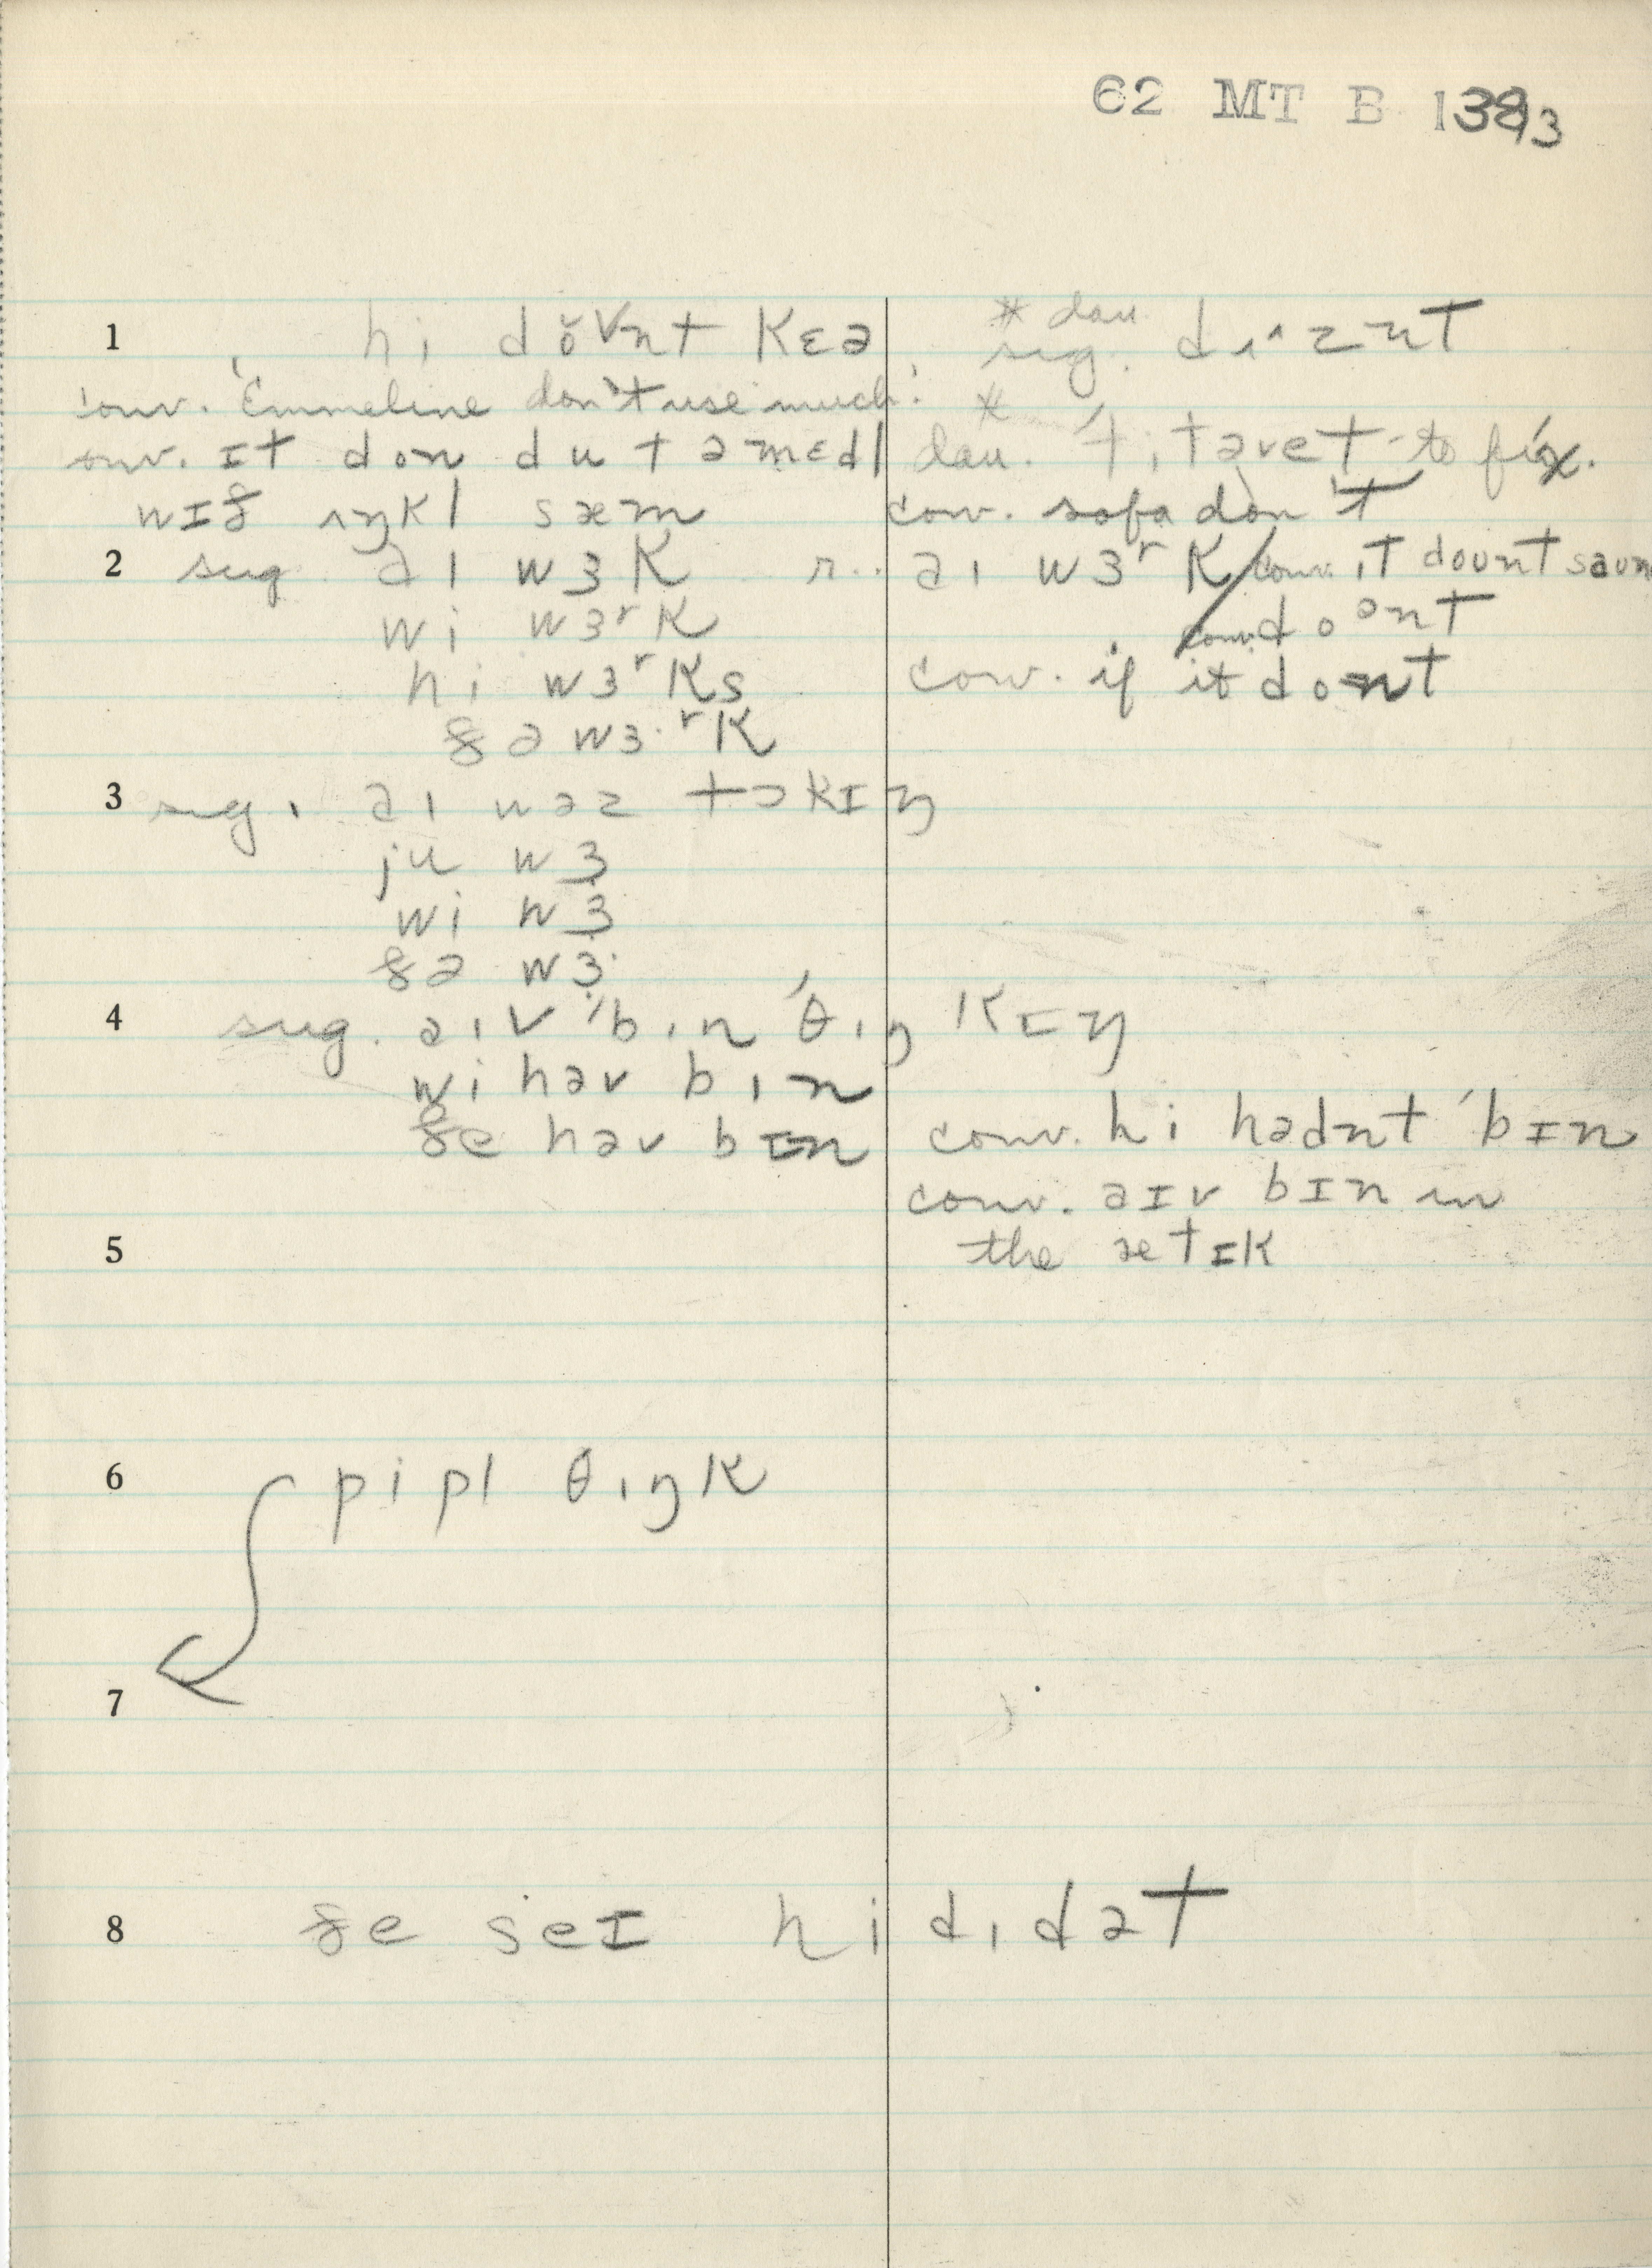 62 MT B
1 hi dŏᴠnt kɛə * dau.
sug. dʌ^znt
conv. 'Emmeline don't use much.' *
conv. ɪt don du t ə mɛdl dau. 't ɪ t əveɪt to fix.
wɪð ʌŋkl sæm conv. sofa don't
2 sug. aɪ wɜk r.. aɪ wɜʳk / conv. ɪt dount saun
wi wɜʳk conv. doᵊnt
hi wɜʳks conv. if it dont
ðə wɜ·ʳk
3 sug. aɪ wəz tɔkɪŋ
ju wɜ
wi wɜ
ðə wɜ·
4 sug. aɪv 'bɪn 'θɪŋkɪŋ
wi həv bɪn
ðe həv bɪn conv. hi hadnt 'bɪn
conv. aɪv bɪn in
5 the ætɪk
6 pipl θɪŋk
7
8 ðe seɪ hi dɪd ət